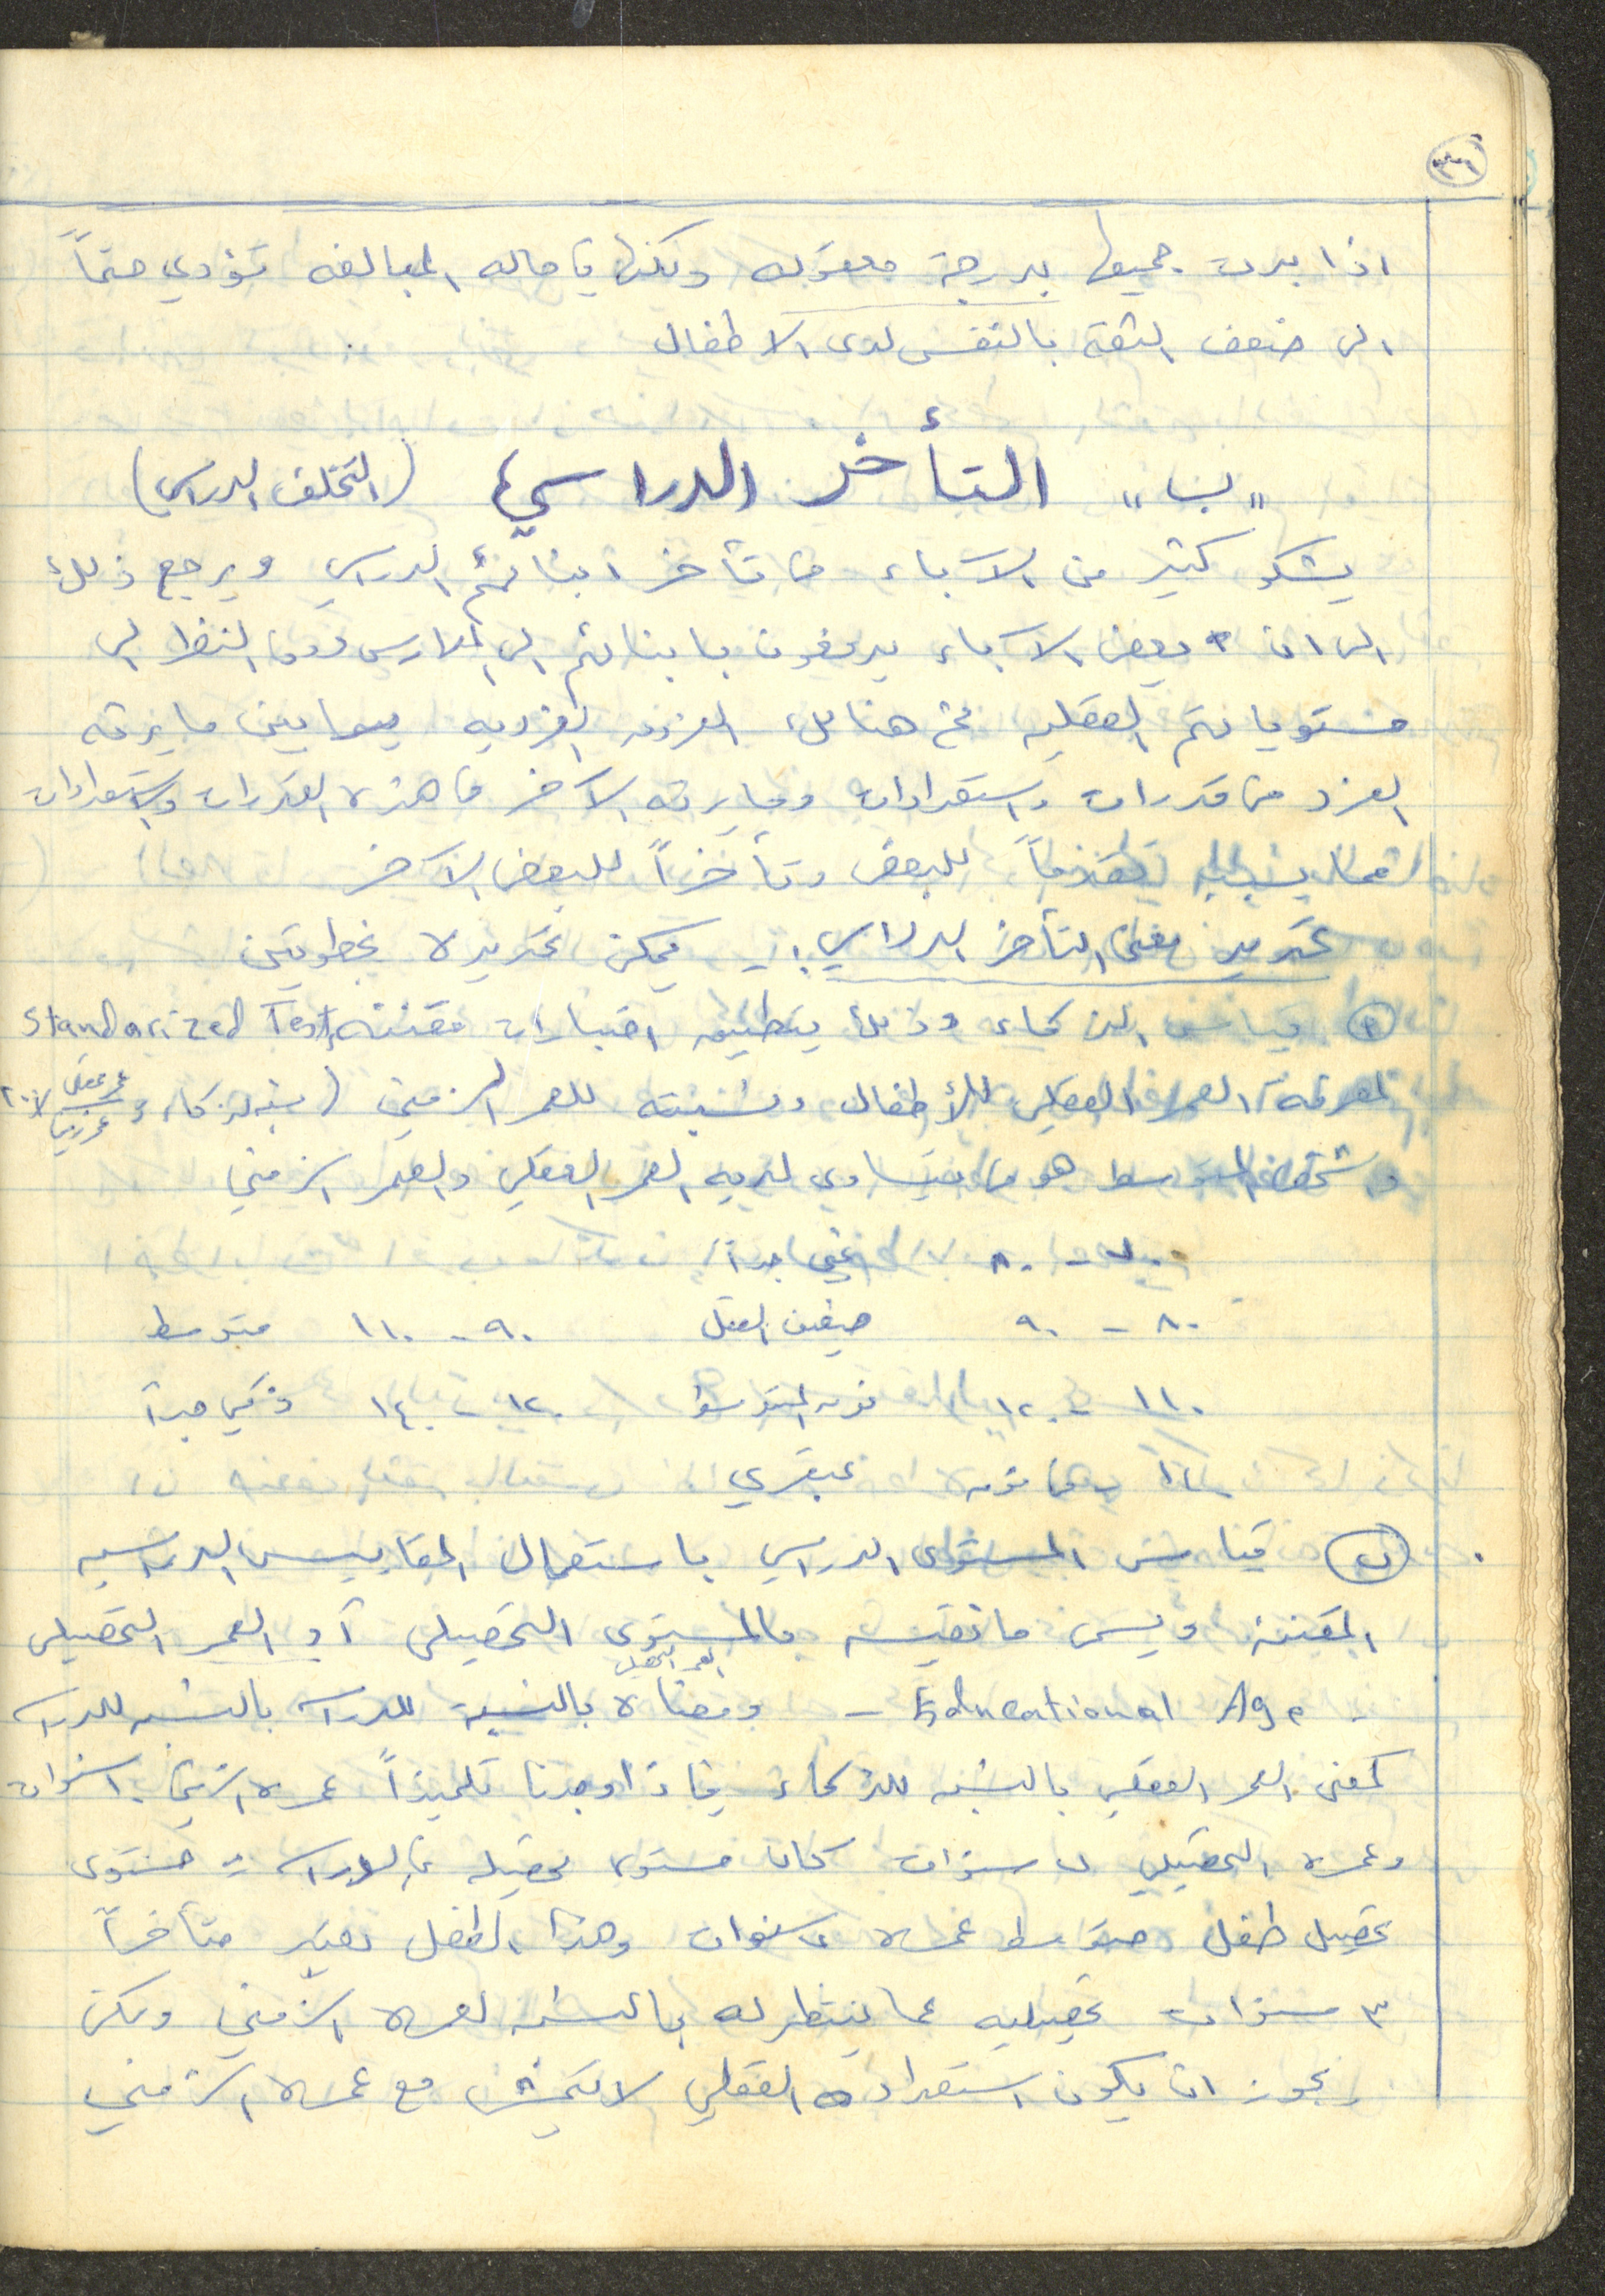 ٣٦
اذا بدت جميعها بدرجة معقوله ولكنها في حاله المبالغه تؤدي حتماً
الى ضعف الثقة بالنفس لدى الاطفال
"ب" التأخر الدراسي (التخلف الدراسي)
يشكو كثير من الآباء من تأخر ابنائهم الدراسي ويرجع ذلك
الى ان بعض الآباء يدفعون بابنائهم الى المدارس دون النظر الى
مستوياتهم العقليه ثم هنالك الفروق الفرديه فيما بين ما يرثه
الفرد من قدرات واستعدادات وما يرثه الآخر من هذه القدرات والاستعدادات
مما يسبب تقدماً للبعض وتأخراً للبعض الآخر
تحديد معنى التأخر الدراسي :ـ يمكن تحديده بخطوتين
١ قياس الذكاء وذلك بتطبيق اختبارات مقننه Standarized Test
لمعرفة العمر العقلي للأطفال ونسبته للعمر الزمني (نسبة الذكاء = عمر عقلي / عمر زمني × ١٠٠
والشخص المتوسط هو من يتساوى لديه العمر العقلي والعمر الزمني
٧٠ - ٨٠ غبي جداً
٨٠ - ٩٠ ضعيف العقل ٩٠ - ١١٠ متوسط
١١٠ - ١٢٠ فوق المتوسط ١٢٠ - ١٤٠ ذكي جداً
١٤٠ وما فوق عبقري
٢ قياس المستوى الدراسي باستعمال المقاييس الدراسيه
المقننة ويسمى ما تقيسه بالمستوى التحصيلي أو العمر التحصيلي
Educational Age - ومعناه العمر التحصيلي بالنسبة للدراسه بالنسبه للدراسه
كمعنى العمر العقلي بالنسبه للذكاء فاذا وجدنا تلميذاً عمره الزمني ١٠ سنوات
وعمره التحصيلي ٧ سنوات كان مستوى تحصيله في الدراسه = مستوى
تحصيل طفل متوسط عمره ٧ سنوات وهذا الطفل يعتبر متأخراً
٣ سنوات تحصيليه عما ينتظر له بالنسبه لعمره الزمني ولكن
يجوز ان يكون استعداده العقلي لا يتمشى مع عمره الزمني